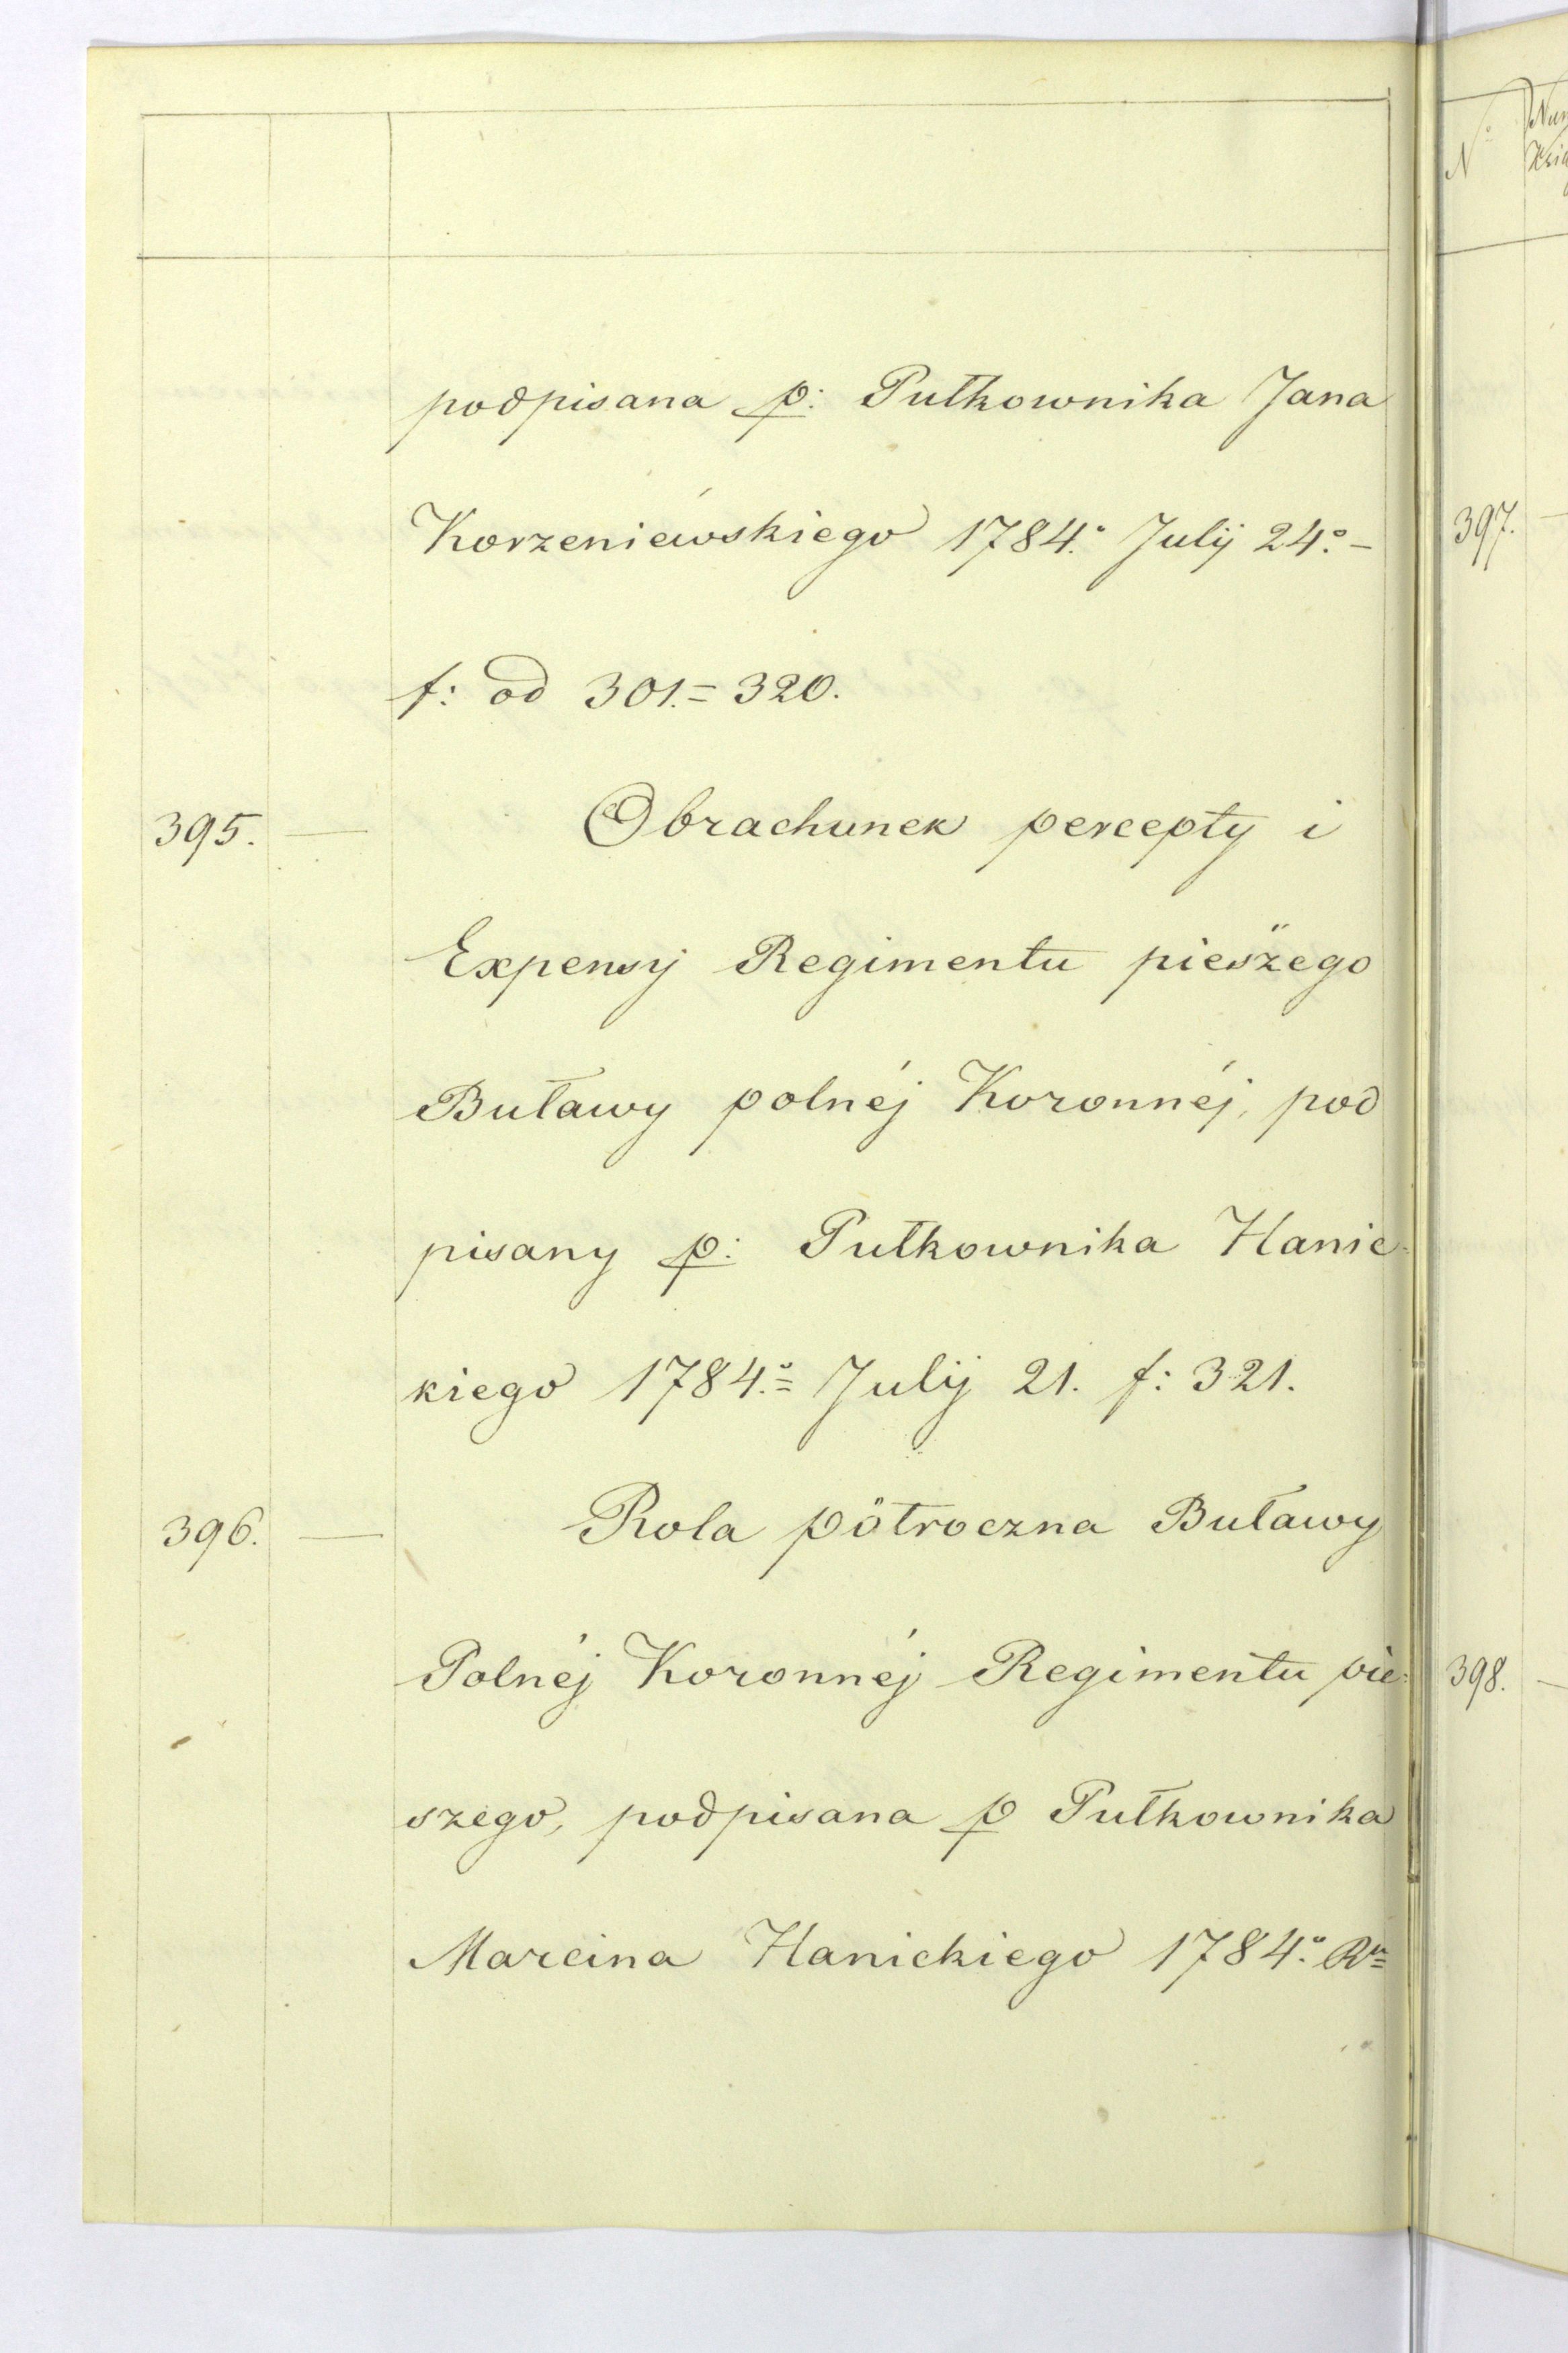 podpisana p: Pułkownika Jana
Korzeniéwskiego 1784.° Julÿ 24.° –
f: od 301.=320.
395. — Obrachunek percepty i
Expensÿ Regimentu pieszego
Buławy polnéj Koronnéj, pod
pisany p: Pułkownika Hanic:
kiego 1784.° = Julÿ 21. f: 321.
396. — Rola pötroczna Buławy
Polnéj Koronnéj Regimentu pie:
szego, podpisana p Pułkownika
Marcina Hanickiego 1784.°
N°
397.
398.